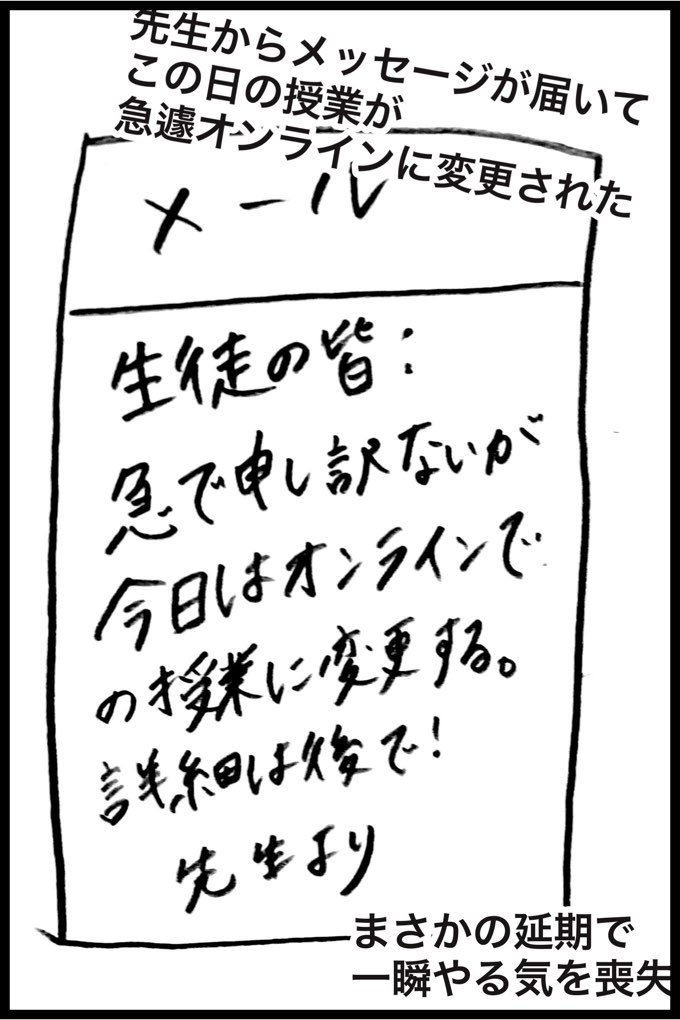 先生からメッセージが届いて
この日の授業が
急遽オンラインに変更された
メール
生徒の皆：
急で申し訳ないが
今日はオンラインで
の授業に変更する。
詳細は後で！
先生より
まさかの延期で
一瞬やる気を喪失